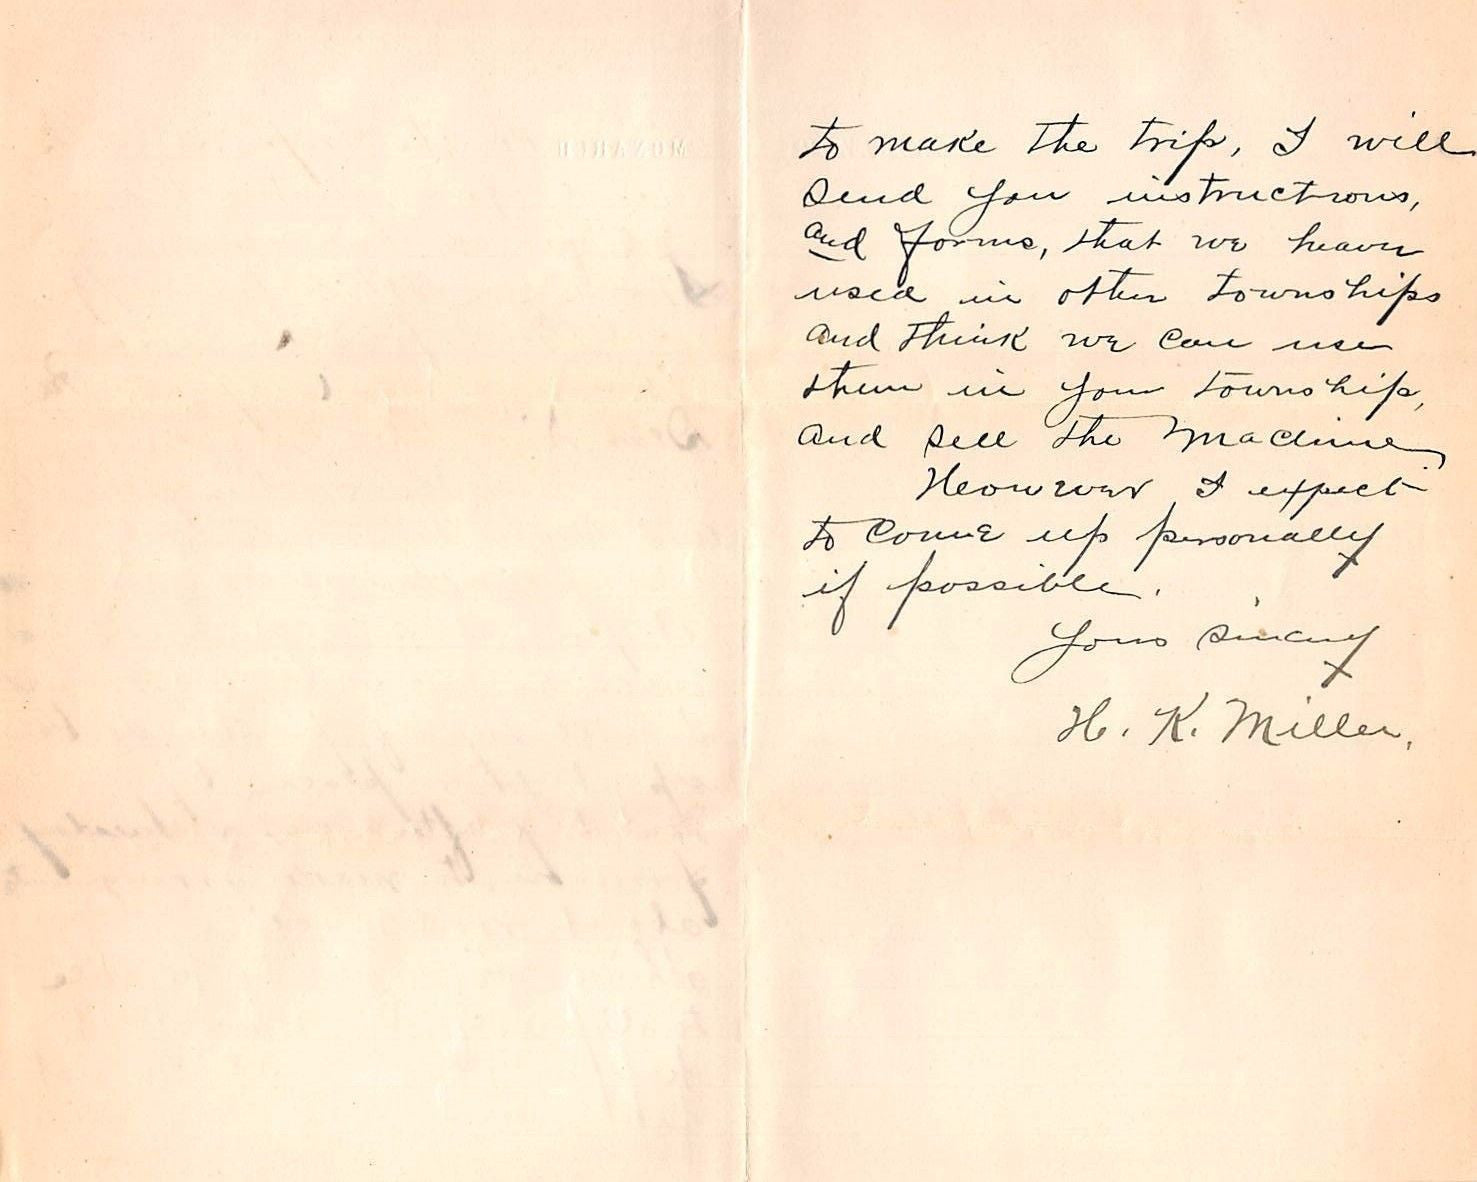 to make the trip, I will
send you instructions,
and forms, that we heave
used in other townships
and think we can use
them in your township,
and sell the Machine,
Heowever I expect
to come up personally
if possible.
Yours sincerely
H. K. Miller.
MONARCH